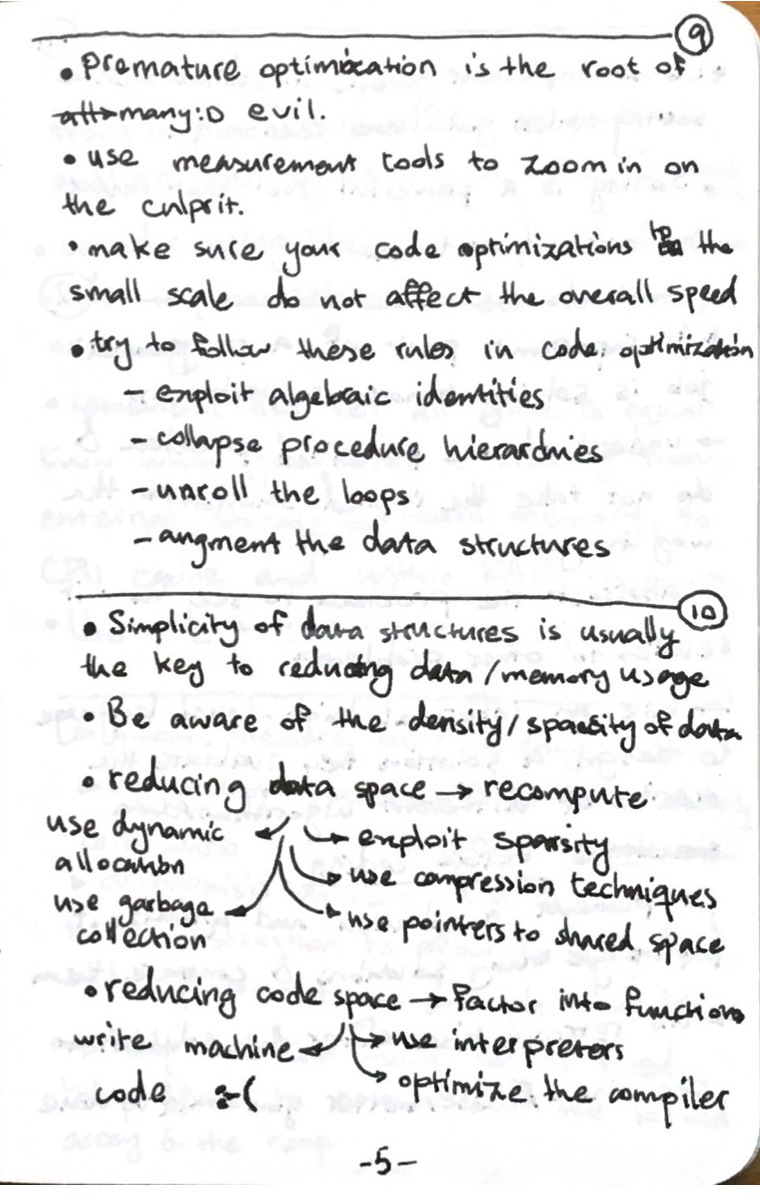 9
• Premature optimization is the root of
all→many:D evil.
• use measurement tools to zoom in on
the culprit.
• make sure your code optimizations in the
small scale do not affect the overall speed
• try to follow these rules in code optimization
- exploit algebraic identities
- collapse procedure hierarchies
- unroll the loops
- augment the data structures
10
• Simplicity of data structures is usually
the key to reducing data/memory usage
• Be aware of the density/sparsity of data
• reducing data space → recompute
use dynamic
allocation
→ exploit sparsity
→ use compression techniques
use garbage
collection
→ use pointers to shared space
• reducing code space → factor into functions
write machine
code :-(
→ use interpreters
→ optimize the compiler
-5-